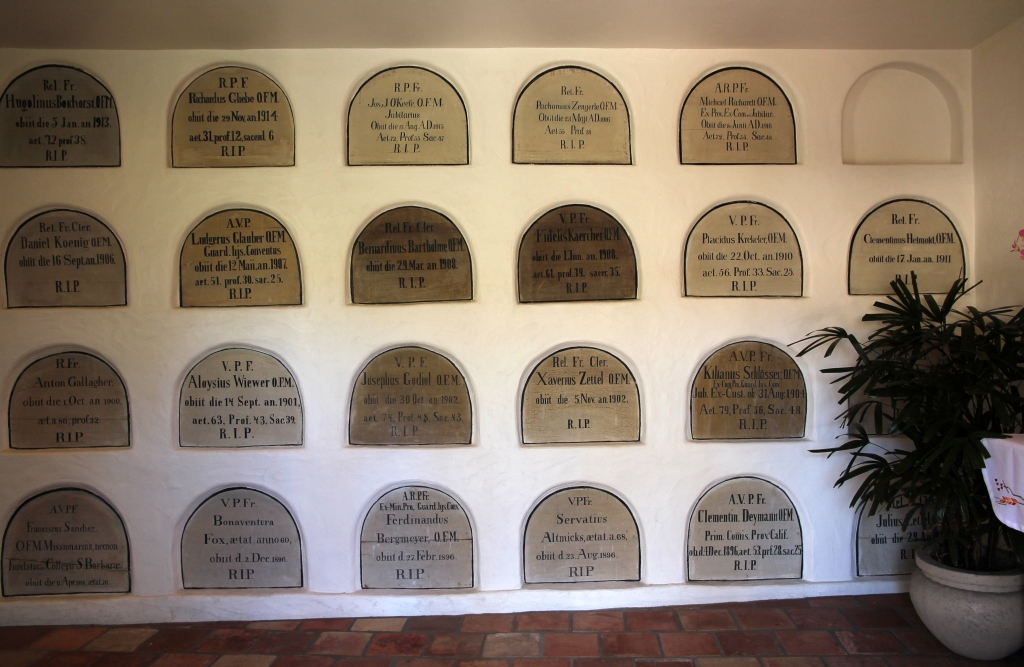 Rel. Fr.
Hugolinus Bokhorst O.F.M.
obiit die 5 Jan. an 1913.
aet. 72 prof 38.
R.I.P.
R.P.F.
Richardus Gliebe O.F.M.
obiit die 29 Nov. an 1914.
aet. 31, prof. 12, sacerd. 6
R.I.P.
R.P. Fr.
Jos. J. O'Keefe O.F.M.
Jubilarius
Obiit die 11 Aug. A.D. 1915
R.I.P.
Rel. Fr.
Pachomius Zengerle O.F.M.
Obiit die Maji A.D. 1916
Aet. 55 Prof
R.I.P.
A.R.P. Fr.
Michael Richardt O.F.M.
Ex. Prov. Ex. Com. Jubilar.
Obiit die Junii A.D.
R.I.P.
Rel. Fr. Cler.
Daniel Koenig O.F.M.
obiit die 16 Sept. an. 1906.
R.I.P.
A.V.P.
Ludgerus Glauber O.F.M.
Guard. hjs. Conventus
obiit die 12 Maii, an. 1907.
aet. 51. prof. 30. sac. 25.
R.I.P.
Rel. Fr. Cler.
Bernardinus Bartholme O.F.M.
obiit die 29. Mar. an 1908.
R.I.P.
V.P. Fr.
Fidelis Kaercher O.F.M.
obiit die an. 1908.
aet. 61. prof. 39. sacer. 35.
R.I.P.
V.P. Fr.
Placidus Krekeler, O.F.M.
obiit die 22 Oct. an 1910
aet. 56. Prof 33. Sac. 25.
R.I.P.
Rel. Fr.
Clementinus Helmold, O.F.M.
obiit die 17 Jan. an. 1911
R.I.
R. Fr.
Anton Gallagher.
obiit die 1. Oct. an 1900.
æt. a 86, prof. 12.
R.I.P
V. P. F.
Aloysius Wiewer O.F.M.
obiit die 14 Sept. an 1901.
aet. 63, Prof. 43, Sac 39.
R. I. P.
V. P. F.
Josephus Godiol O.F.M.
obiit die 30 Oct an 1902.
aet. 74, Prof. 48, Sac. 43.
R.I.P.
Rel. Fr. Cler.
Xaverus Zettel O.F.M.
obiit die 5 Nov. an 1902.
R.I.P.
A.V.P. Fr.
Kilianus Schlösser, O.F.M.
Jub. Ex-Cust. ob. 31 Aug. 1904
Aet. 79, Prof. 56, Sac. 48.
R.I.P.
A.V.P.F
Franciscus Sanchez,
O.F.M Missionarius, necnon
Fundator Collegii S. Barbaræ
V.P. Fr.
Bonaventura
Fox, ætat. anno 60,
obiit d. 2. Dec. 1896.
RIP
A.R.P. Fr.
Ex-Min. Pro., Guard. hjs. Con.
Ferdinandus
Bergmeyer, O.F.M.
obiit d. 27. Febr. 1896.
R.I.P
V.P.Fr.
Servatius
Altmicks, æt. a. 68,
obiit d. 23. Aug. 1896.
RIP
A.V.P. Fr.
Clementin. Deymann O.F.M
Prim. Comis. Prov. Calif.
ob. d. 4 Dec. 1896, aet. 53, prf. 28. sac. 25
R.I.P.
Julius
obiit die
R